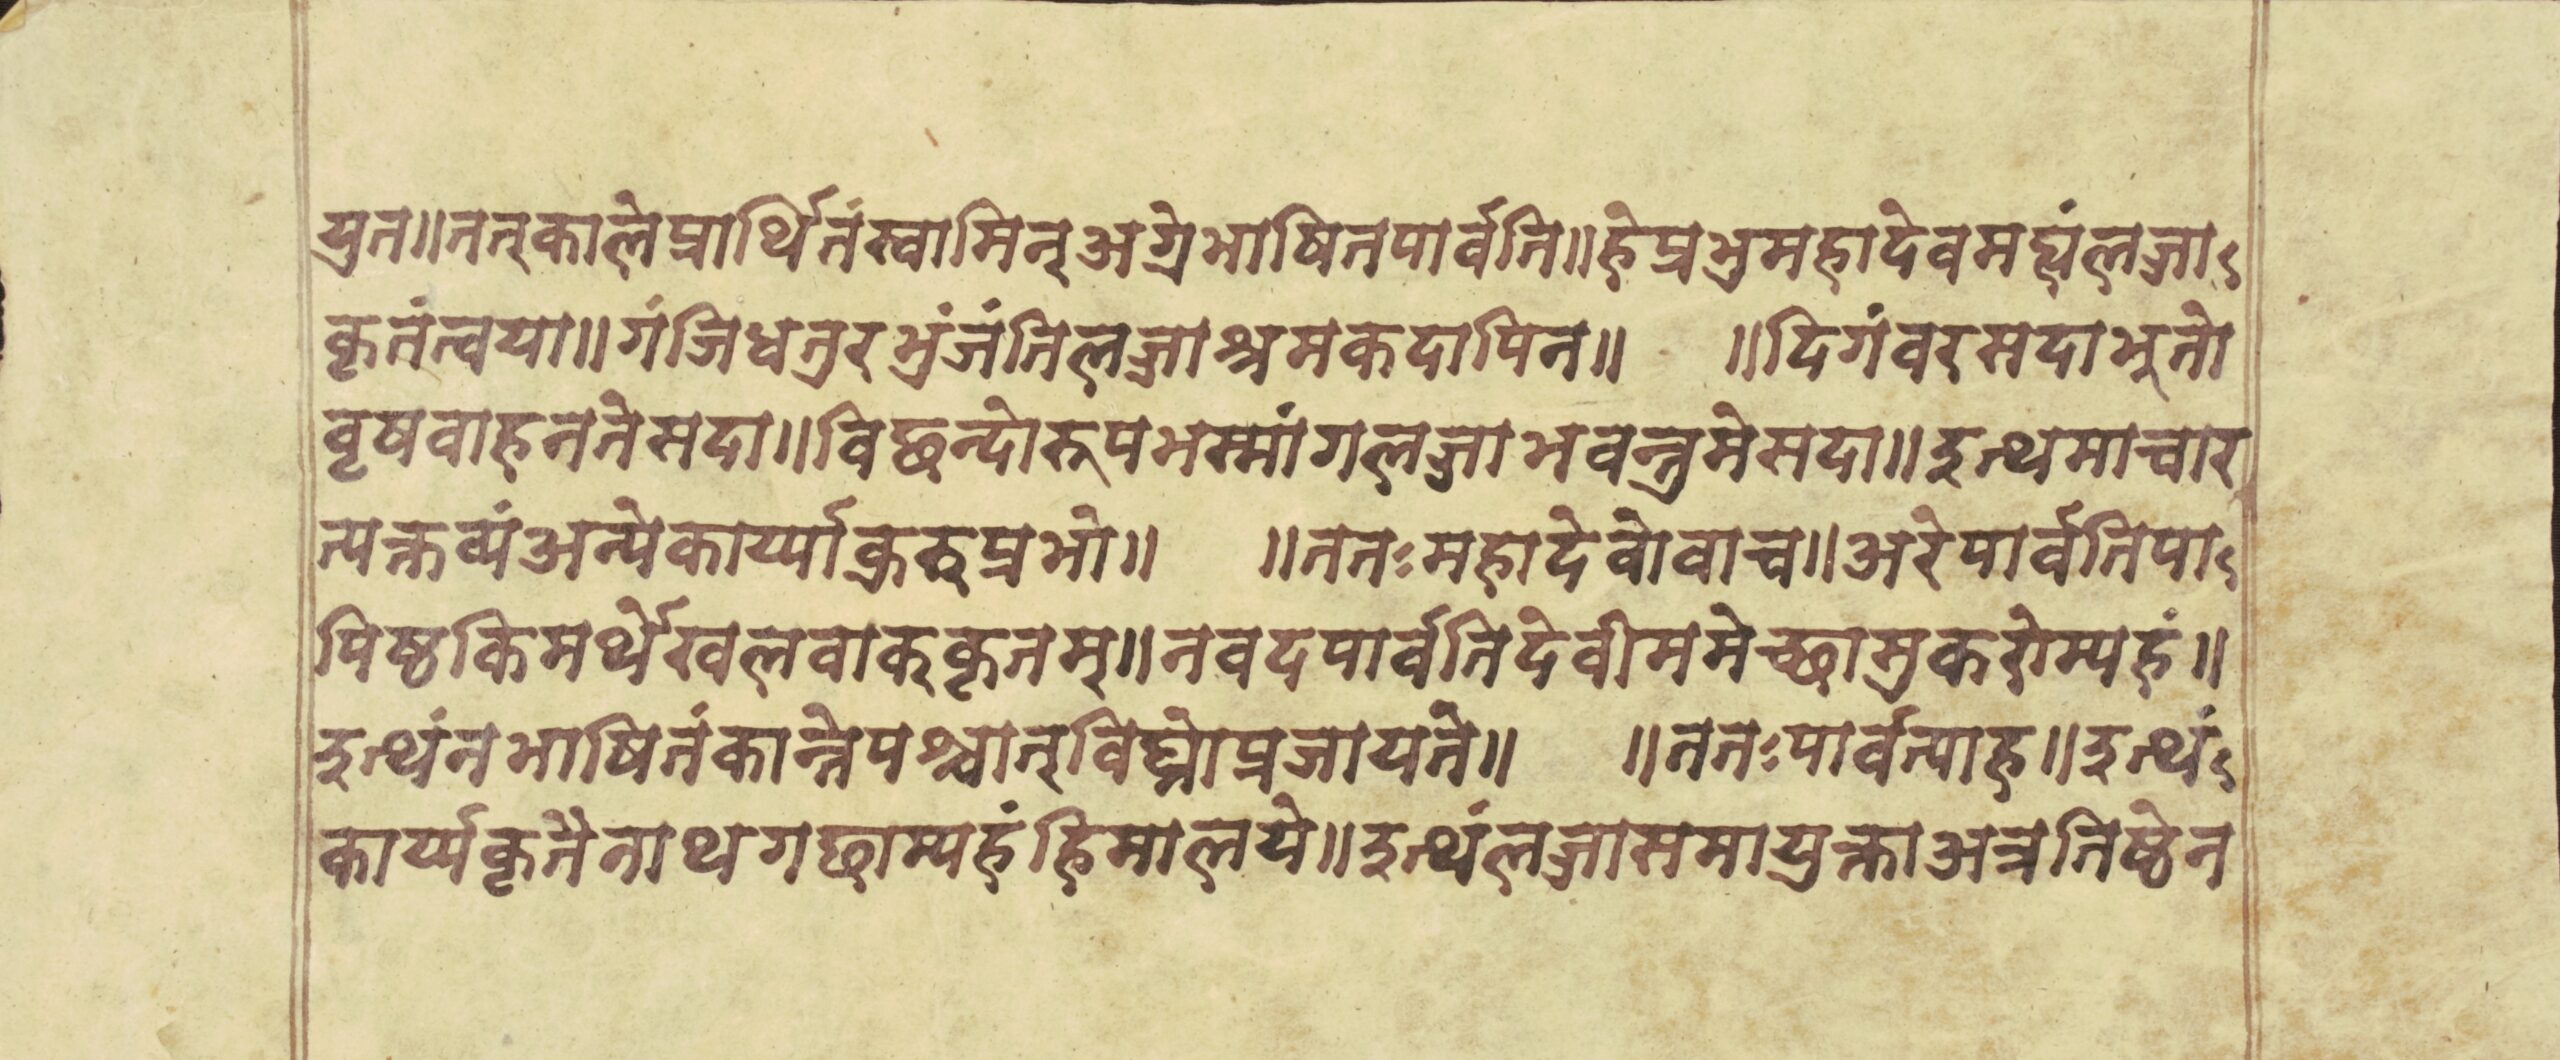 युत॥तत्कालेप्रार्थितंस्वामिन्अग्रेभाषितपार्वति॥हेप्रभुमहादेवमह्यंलज्जा
कृतंत्वया॥गंजिधतुरभुंजंतिलज्जाश्रमकदापिन॥ ॥दिगंवरमदाभूतो
वृषवाहनतेसदा॥विछन्दोरूपभस्मांगलज्जाभवन्तुमेसदा॥इत्थमाचार
त्यक्तव्यंअन्येकार्य्याक्रुरुप्रभो॥ ॥ततःमहादेवोवाच॥अरेपार्वतिपा
पिष्ठकिमर्थैखलवाक्कृतम्॥नवदपार्वतिदेवीममेच्छामुकरोम्यहं॥
इत्थंनभाषितंकान्तेपश्चात्विघ्नोप्रजायते॥ ॥ततःपार्वत्याह॥इत्थं
कार्य्यकृतैनाथगछाम्यहंहिमालये॥इत्थंलज्जासमायुक्ताअत्रतिष्ठेन